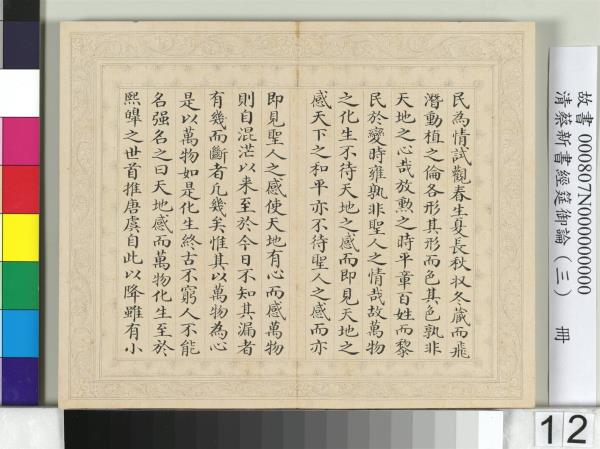 民為情試觀春生夏長秋收冬藏而飛
潛動植之倫各形其形而色其色孰非
天地之心哉放勲之時平章百姓而黎
民於變時雍孰非聖人之情哉故萬物
之化生不待天地之感而即見天地之
感天下之和平亦不待聖人之感而亦
即見聖人之感使天地有心而感萬物
則自混茫以来至於今日不知其漏者
有幾而斷者凢幾矣惟其以萬物為心
是以萬物如是化生終古不窮人不能
名强名之曰天地感而萬物化生至於
熙皡之世首推唐虞自此以降雖有小
故書 000807N000000000
清蔡新書經筵御論（三） 冊
12